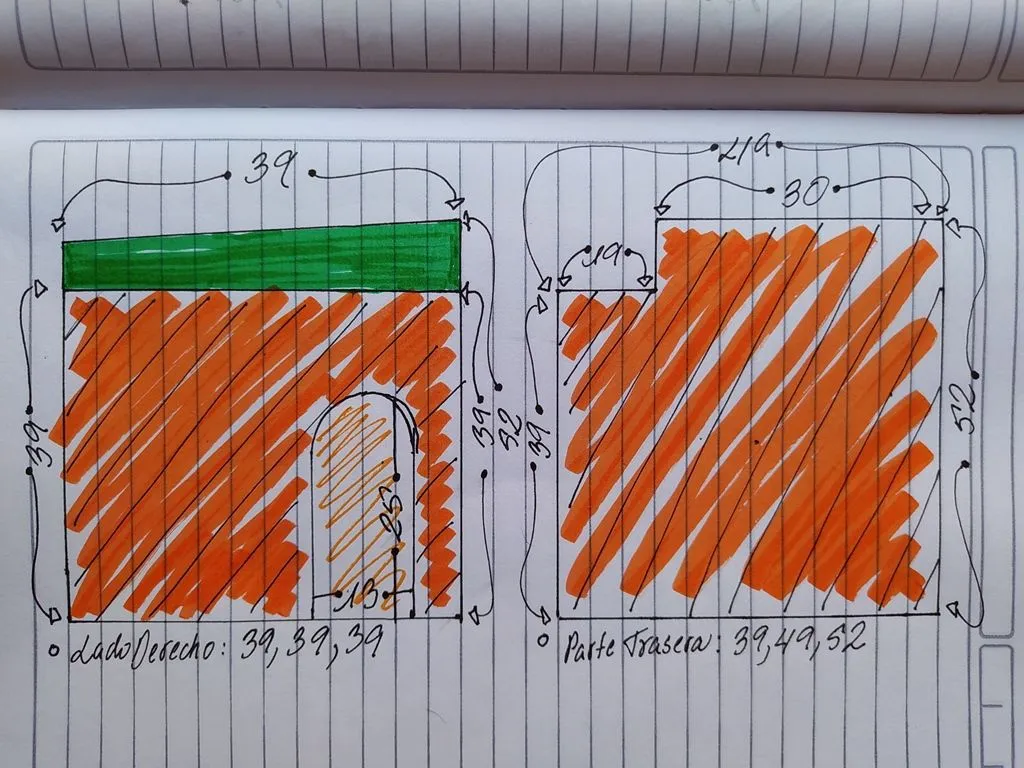 39
49
30
19
39
39
52
39
52
25
13
Lado Derecho: 39, 39, 39
Parte Trasera: 39, 49, 52